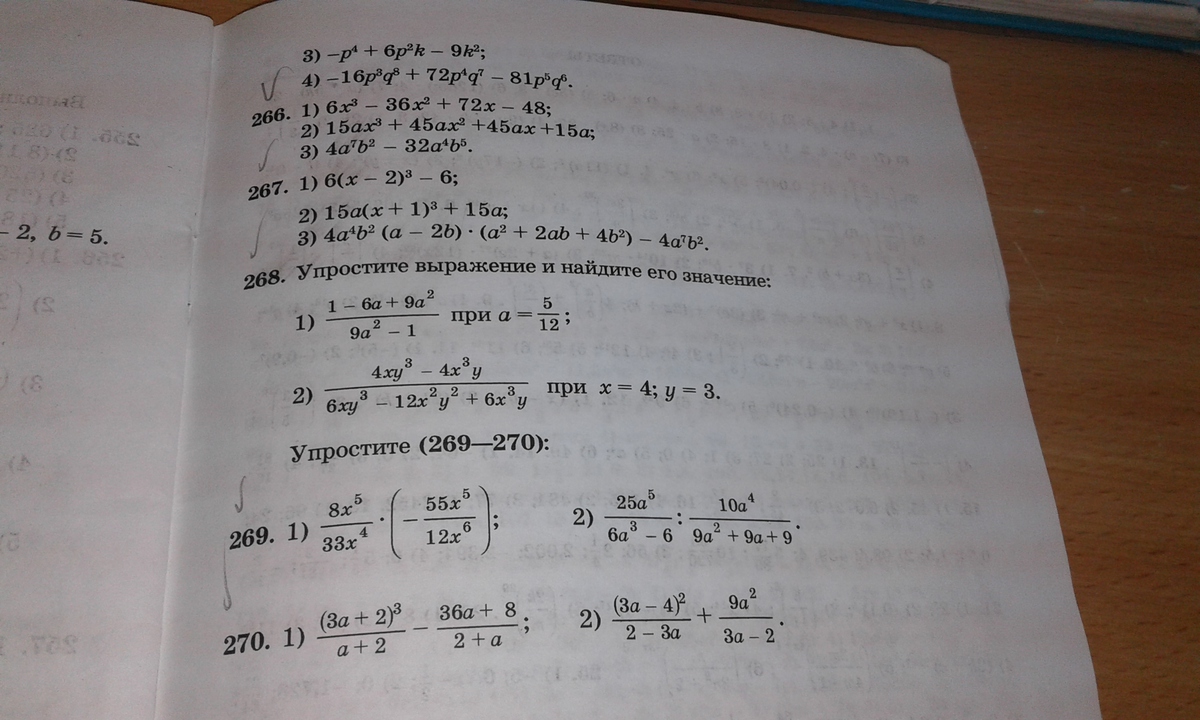 3) −p⁴ + 6p²k − 9k²;
4) −16p³q⁸ + 72p⁴q⁷ − 81p⁵q⁶.
266. 1) 6x³ − 36x² + 72x − 48;
2) 15ax³ + 45ax² +45ax +15a;
3) 4a⁷b² − 32a⁴b⁵.
267. 1) 6(x − 2)³ − 6;
2) 15a(x + 1)³ + 15a;
− 2, b = 5.
3) 4a⁴b² (a − 2b) · (a² + 2ab + 4b²) − 4a⁷b².
268. Упростите выражение и найдите его значение:
1) (1 − 6a + 9a²)/(9a² − 1) при a = 5/12;
2) (4xy³ − 4x³y)/(6xy³ − 12x²y² + 6x³y) при x = 4; y = 3.
Упростите (269—270):
269. 1) 8x⁵/33x⁴ · (− 55x⁵/12x⁶); 2) 25a⁵/(6a³ − 6) : 10a⁴/(9a² + 9a + 9).
270. 1) (3a + 2)³/(a + 2) − (36a + 8)/(2 + a); 2) (3a − 4)²/(2 − 3a) + 9a²/(3a − 2).